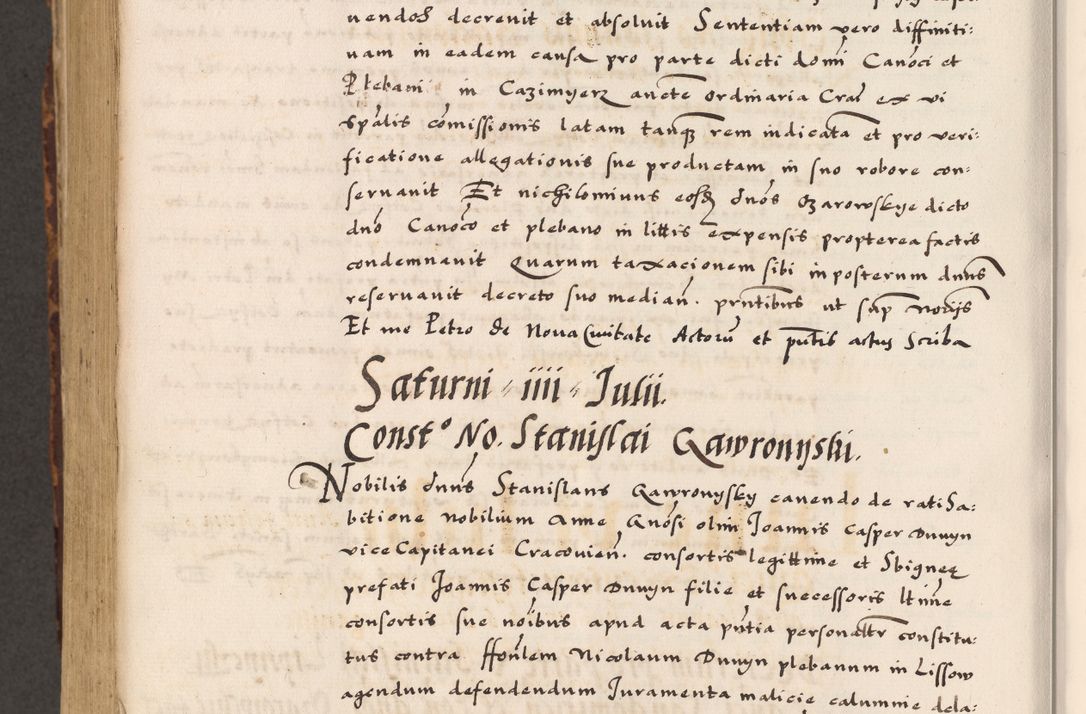 uendos decreuit et absoluit Sententiam vero diffiniti:
uam in eadem causa pro parte dicti domi Canoci et
Plebani in Cazimyerz aucte ordinaria Cras ex vi
spalis comissionis latam tanq rem iudicata et pro veri:
ficatione allegationis sue productam in suo robore con:
seruauit Et nichilominus eosd dnos Ozarowskye dicto
dno Canoco et plebano in littis expensis propterea factis
condemnauit Quarum taxacionem sibi inposterum dnus
reseruauit decreto suo median. prntibus ut sup notijs
Et me Petro de Noua Ciuitate Actoru et pntis actus Scriba
Saturni iiii Julii.
Const.o No. Stanislai Gawronyski.
Nobilis dnus Stanislaus Gawronysky cauendo de ratiha:
bitione nobilium Anne Gnosi olim Joannis Casper Dunyn
vice Capitanei Cracouien. consortis legittime et Sbignee
prefati Joannis Casper Dunyn filie et successoris ltime
consortis sue noibus apud acta pntia personaltr constitu:
tus contra ffonlem Nicolaum Dunyn plebanum in Lissow
agendum defendendum Juramenta malicie calumnie dela: